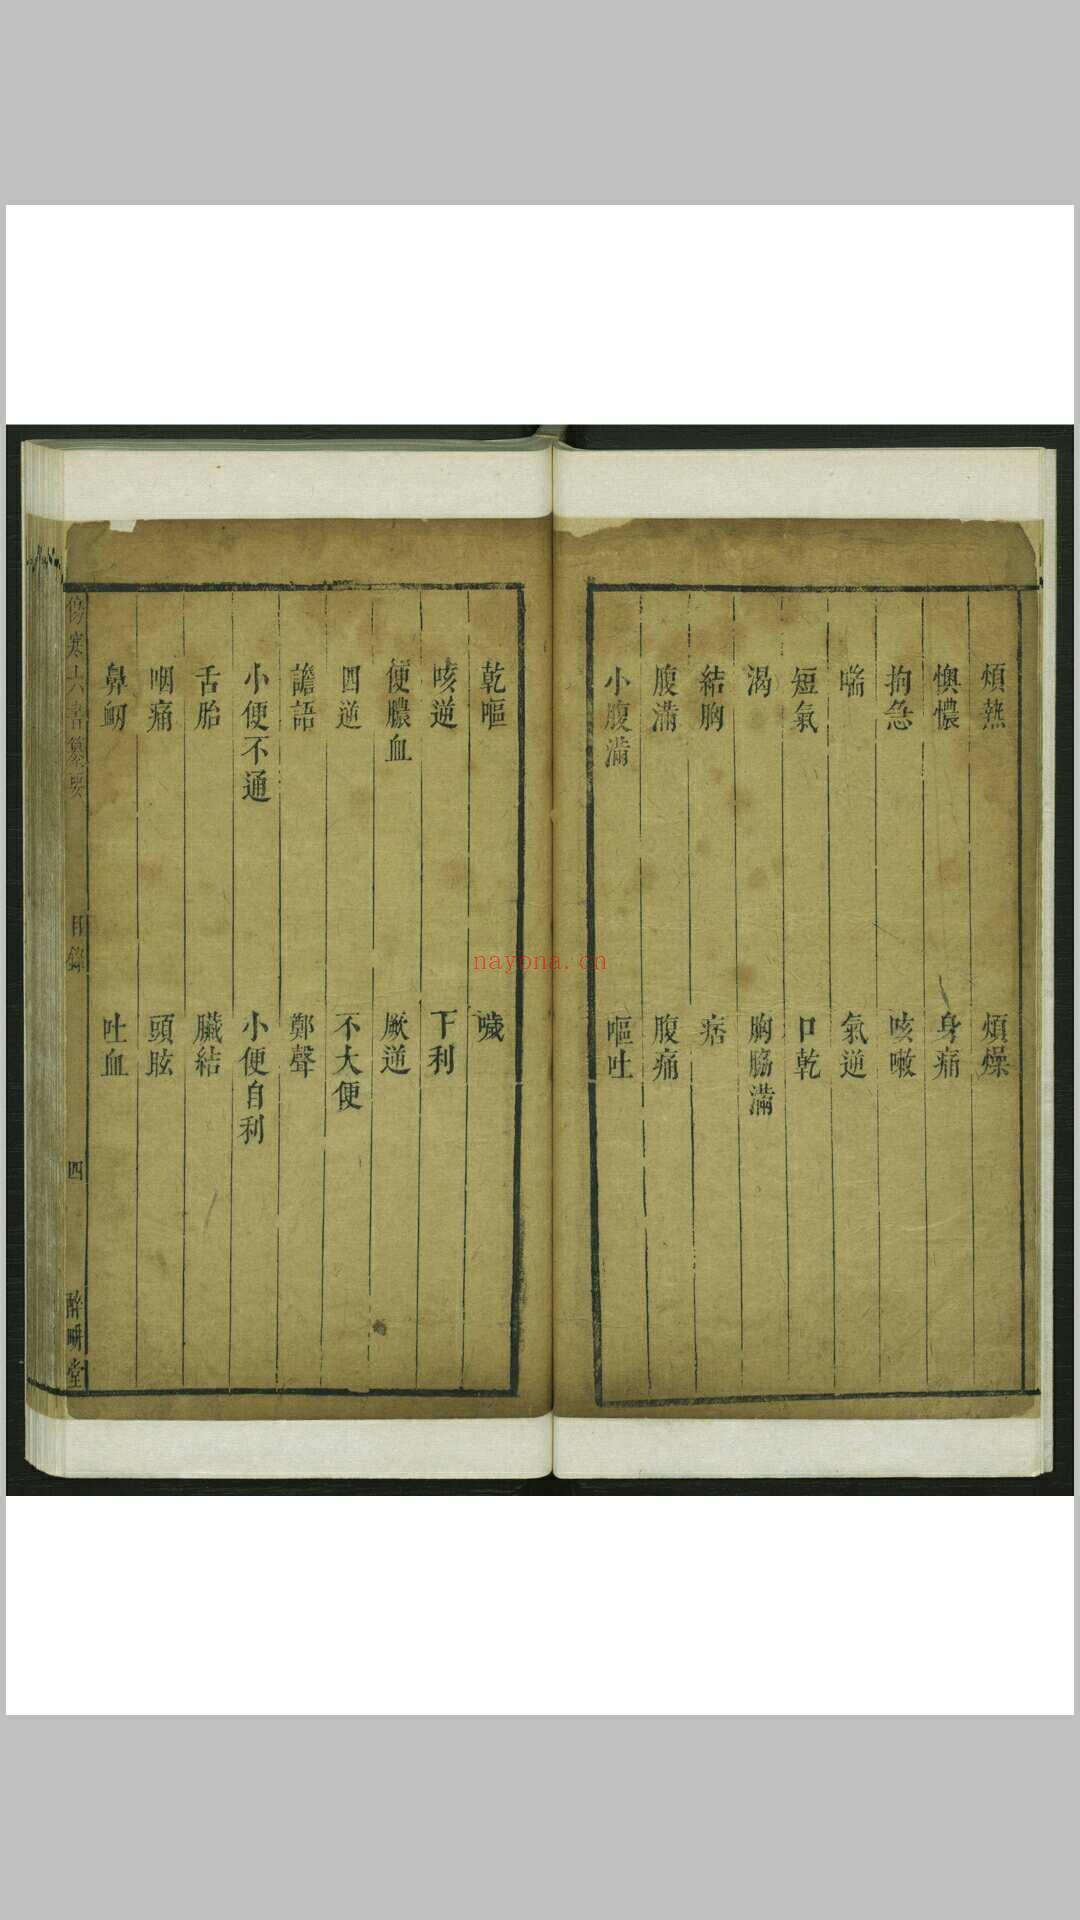 煩熱 煩燥
懊憹 身痛
拘急 咳嗽
喘 氣逆
短氣 口乾
渴 胸脇滿
結胸 痞
腹滿 腹痛
小腹滿 嘔吐
乾嘔 噦
咳逆 下利
便膿血 厥逆
四逆 不大便
譫語 鄭聲
小便不通 小便自利
舌胎 臟結
咽痛 頭眩
鼻衂 吐血
傷寒六書纂要 目錄 四 醉畊堂
nayona.cn